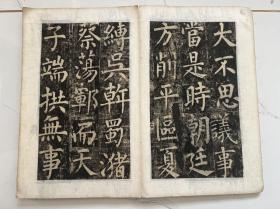 大不思議事
當是時朝廷
方削平區夏
縛吳斡蜀瀦
蔡蕩鄆而天
子端拱無事